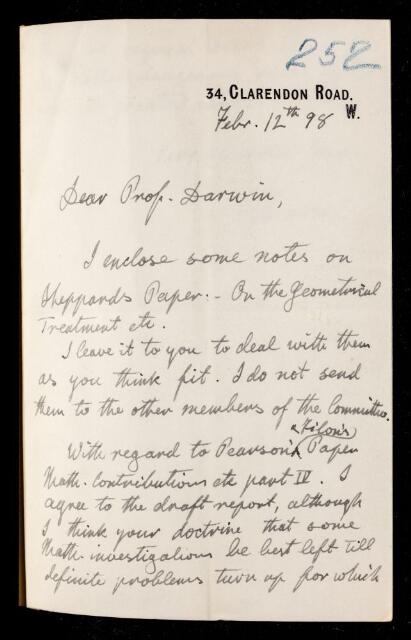 252
34, CLARENDON ROAD.
W.
Febr. 12th 98
Dear Prof. Darwin,
I enclose some notes on
Sheppards Paper:- On the Geometrical
Treatment etc.
I leave it to you to deal with them
as you think fit. I do not send
them to the other members of the Committee.
& Filon's
With regard to Pearson's Paper
Math. Contributions etc part IV. I
agree to the draft report, although
I think your doctrine that some
Math. investigations be best left till
definite problems turn up for which